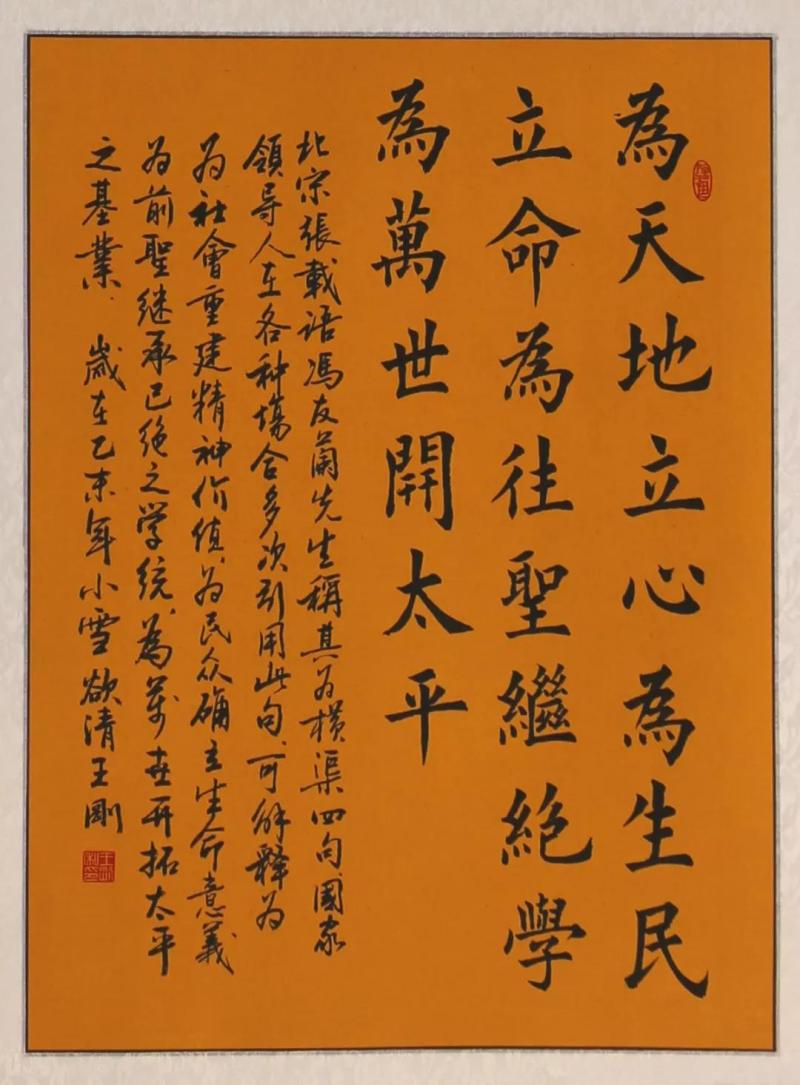 為天地立心為生民
立命為往聖繼絕學
為萬世開太平
北宗張載语馮友蘭先生稱其为橫渠四句國家
領导人在各种場合多次引用此句、可解釋为
为社會重建精神价值、为民众确立生命意義
为前聖继承已绝之学统、為萬世开拓太平
之基業、歲在乙未年小雪欲清王剛